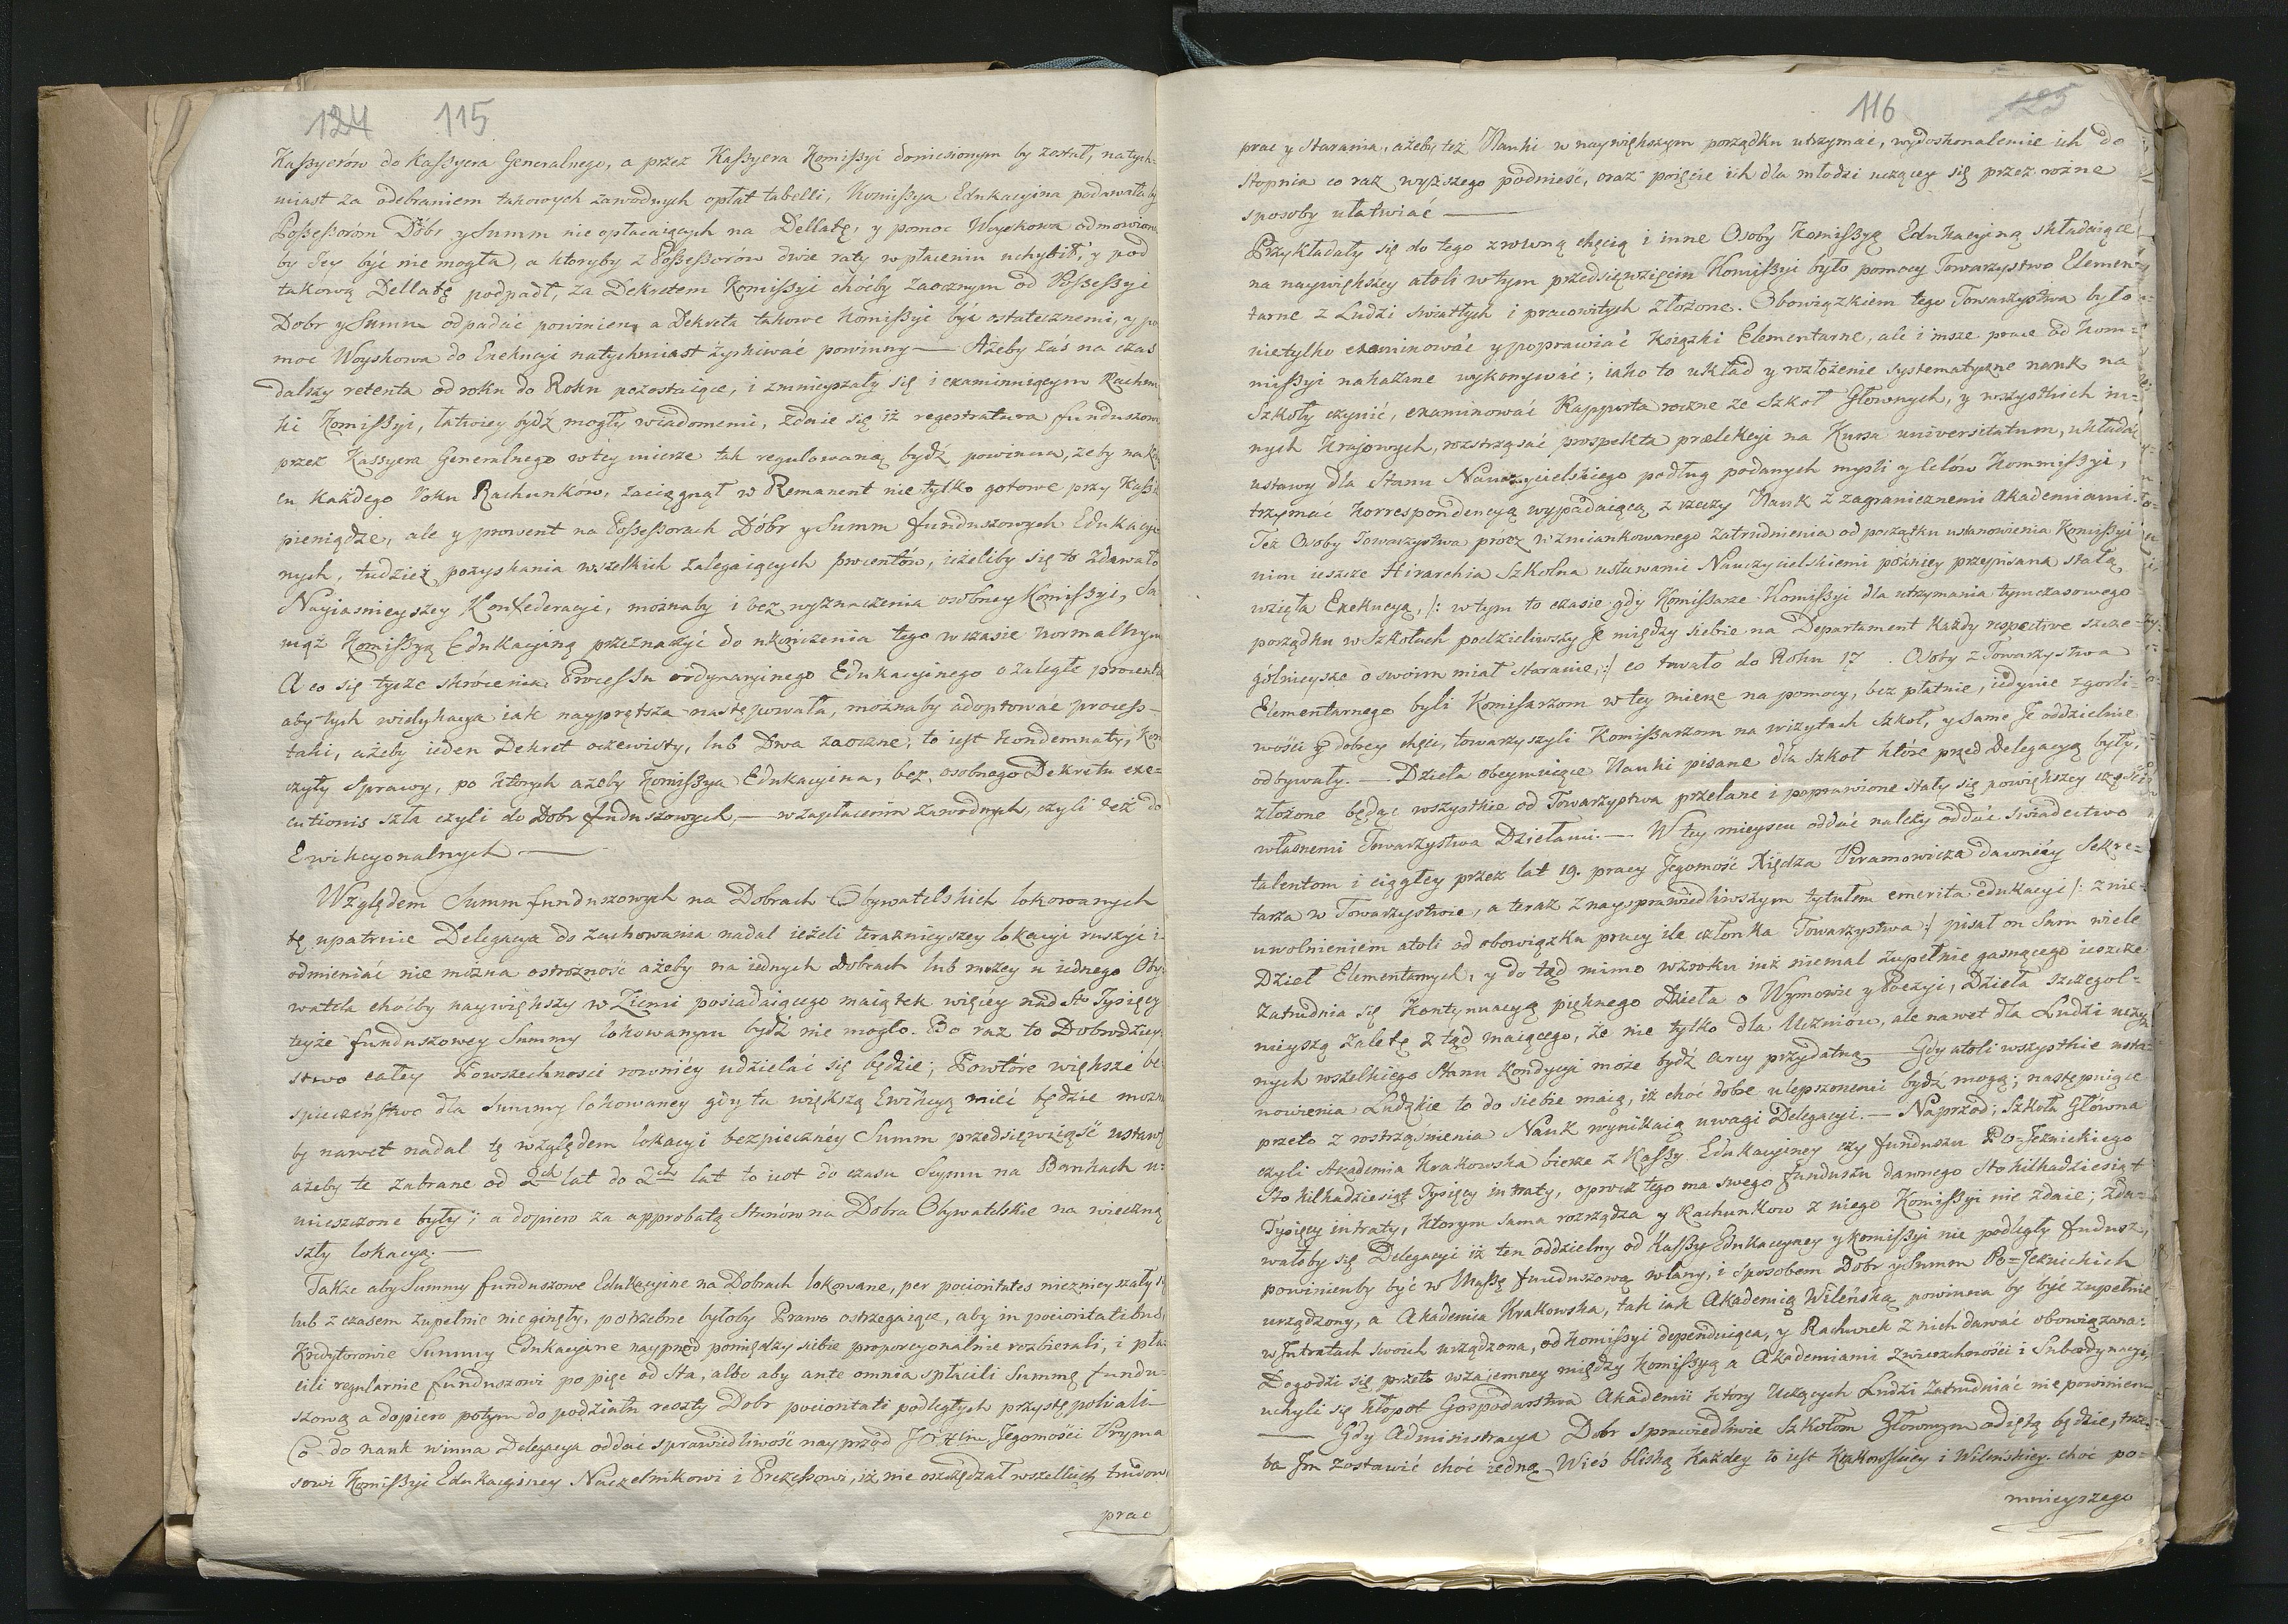 124 115
Kaßyerów do Kaßyera Generalnego, a przez Kaßyera Komißyi doniesionym by został, natych-
miast za odebraniem takowych zawodnych opłat tabelli, Komißya Edukacyina podawałaby
Poßeßorom Dóbr y Summ nie opłacaiących na Dellatę, y pomoc Woyskowa odmowiona
by Jey być nie mogła, a ktoryby z Poßeßorów dwie raty w płaceniu uchybił, y pod
takową Dellatę podpadł, za Dekretem Komißyi choćby zaocznym od Poßeßyi
Dobr y Summ odpadać powinien, a Dekreta takowe Komißyi być ostatecznemi, y po
moc Woyskowa do Exekucyi natychmiast zyskiwać powinny — Ażeby zaś na czas
dalszy retenta od roku do Roku pozostaiące, i zmnieyszały się i examinuiącym Rachun
ki Komißyi, łatwiey bydź mogły wiadomemi, zdaie się iż regestratura funduszowa
przez Kassyera Generalnego w téy mierze tak regulowaną bydź powinna, żeby na koń
cu każdego Roku Rachunków, zaciągnął w Remanent nie tylko gotowe przy Kaßie
pieniądze, ale y prowent na Poßeßorach Dóbr y Summ funduszowych Edukacyi
nych, tudzież pozyskania wszelkich zalegaiących procentów, ieżeliby się to zdawało
Nayiasnieyszey Konfederacyi, możnaby i bez wyznaczenia osobney Komißyi, Sa
mąż Komißyą Edukacyiną przeznaczyć do ukończenia tego w czasie normalnym
A co się tycze skrócenia Proceßu ordynaryinego Edukacyinego o zaległe procenta
aby tych widykacya iak nayprętsza następowała, możnaby adoptować proceß
taki, ażeby ieden Dekret oczewisty, lub Dwa zaoczne, to iest Kondemnaty, Koń
czyły Sprawy, po których ażeby Komißya Edukacyina, bez osobnego Dekretu exe-
cutionis szła czyli do Dobr funduszowych, — w zapłaceniu zawodnych, czyli też do
Ewikcyonalnych. —
Względem Summ funduszowych na Dobrach Obywatelskich lokowanych
tę upatruie Delegacya do zachowania nadal ieżeli teraznieyszey lokacyi ruszyć i
odmieniać nie można ostrożność ażeby na iednych Dobrach lub raczey u iednego Oby
watela choćby naywiększy w Ziemi posiadaiącego maiątek więcéy nad Sto Tysięcy
teyże funduszowey Summy lokowanym bydź nie mogło. Bo raz to Dobrodziey
stwo całey Powszechności rowniéy udzielać się będzie; Powtóre większe be-
spieczeństwo dla Summy lokowaney gdy ta większą Ewikcyą mieć będzie można
by nawet nadal tę względem lokacyi bezpieczniéy Summ przedsięwziąść ustawę
ażeby te zabrane od 2ch lat do 2ch lat to iest do czasu Seymu na Bankach u-
mieszczone były; a dopiero za approbatą Stanów na Dobra Obywatelskie na wieczną
szły lokacyą. —
Także aby Summy funduszowe Edukacyine na Dobrach lokowane, per pocioritates nieznieyszały się
lub z czasem zupełnie nie ginęły, potrzebne byłoby Prawo ostrzegaiące, aby in pocioritatibus,
Kredytorowie Summy Edukacyine nayprzod pomiędzy siebie proporcyonalnie rozbierali, i pła-
cili regularnie funduszowi po pięć od Sta, albo aby ante omnia spłacili Summę fundu-
szową a dopiero potym do podziału reszty Dobr pocioritati podległych przystępowali —
Co do nauk winna Delegacya oddać sprawiedliwość nayprzód Jegomości Pryma
sowi Komißyi Edukacyiney Naczelnikowi i Prezeßowi, iż nie oszczędzał wszelkich trudow
prac
116 125
prac y starania, ażeby też Nauki w naywiększym porządku utrzymać, wydoskonalenie ich do
stopnia co raz wyższego podnieść, oraz poięcie ich dla młodzi uczącey się przez rożne
sposoby ułatwiać —
Przykładały się do tego z rowną chęcią i inne Osoby Komißyą Edukacyiną składaiące
na naywiększey atoli w tym przedsięwzięciu Komißyi było pomocy Towarzystwo Elemen-
tarne z Ludzi swiatłych i pracowitych złożone. Obowiązkiem tego Towarzystwa było
nie tylko examinować y poprawiać Książki Elementarne, ale i insze prace od Kom-
mißyi nakazane wykonywać; iako to układ y rozłożenie systematyczne nauk na
Szkoły czynić, examinować Rapporta roczne ze Szkoł Głownych, y wszystkich in-
nych Krajowych, rozstrząsać prospekta prælekcyi na Kursa universitatum, układać
ustawy dla Stanu Nauczycielskiego podług podanych mysli y Celów Kommißyi,
trzymać Korrespondencyą wypadaiącą z rzeczy Nauk z zagranicznemi Akademiami
Też Osoby Towarzystwa procz wzmiankowanego zatrudnienia od początku ustanowienia Komißyi
nim ieszcze Hirarchia Szkolna ustawami Nauczycielskiemi później przepisana stałą
wzięła Exekucyą, /: w tym to czasie gdy Komißarze Komißyi dla utrzymania tymczasowego
porządku w Szkołach podzieliwszy Je między siebie na Departament Każdy respective szcze-
gólnieysze o swoim miał staranie, :/ co trwało do Roku 17 . Osoby z Towarzystwa
Elementarnego byli Komißarzom w tey mierze na pomocy, bez płatnie, iedynie z gorli-
wości y dobrey chęci, towarzyszyli Komißarzom na wizytach Szkoł, y same Je oddzielnie
odbywały. — Dzieła obeymuiące Nauki pisane dla szkoł które przed Delegacyą były,
złożone będąc wszystkie od Towarzystwa przelane i poprawione stały się powiększey części
własnemi Towarzystwa Dziełami. — W tey mieyscu oddać należy oddać swiadectwo
talentom i ciągłey przez lat 19. pracy Jegomość Xiędza Piramowicza dawniéy Sekre-
tarza w Towarzystwie, a teraz z naysprawiedliwszym tytułem emerita edukacyi /: z nie-
uwolnieniem atoli od obowiązku pracy ile członka Towarzystwa :/ pisał on Sam wiele
Dzieł Elementarnych, y do tąd mimo wzroku iuż niemal zupełnie gasnącego ieszcze
zatrudnia się Kontynuacyą pięknego Dzieła o Wymowie y Poezyi, Dzieła szczegol-
nieyszą zaletę z tąd maiącego, że nie tylko dla Uczniów, ale nawet dla Ludzi uczo
nych wszelkiego Stanu Kondycyi może bydź arcy przydatną — Gdy atoli wszystkie usta-
nowienia Ludzkie to do siebie maią, iż choć dobre ulepszonemi bydź mogą; następuiące
przeto z rostrząsnienia Nauk wynikaią uwagi Delegacyi. — Naprzod; Szkoła Główna
czyli Akademia Krakowska bierze z Kaßy Edukacyiney czy funduszu Po-Jezuickiego
Sto kilkadziesiąt Tysięcy intraty, oprocz tego ma swego funduszu dawnego Sto kilkadziesiąt
Tysięcy intraty, ktorym sama rozrządza y Rachunkow z niego Komißyi nie zdaie; zda-
wałoby się Delegacyi iż ten oddzielny od Kaßy Edukacyiney y Komißyi nie podległy fundusz,
powinienby być w Massę funduszową wlany, i sposobem Dobr y Summ Po-Jezuickich
urządzony, a Akademia Krakowska, tak iak Akademią Wileńską powinna by być zupełnie
w Intratach swoich urządzona, od Komißyi dependuiąca, y Rachunek z nich dawać obowiązana:
Dogodzi się przeto wzaiemney między Komißyą a Akademiami Zwierzchności i Subordynacyi,
uchyli się Kłopot Gospodarstwa Akademii ktory Uczących Ludzi zatrudniać nie powinien
— Gdy Administracya Dobr sprawiedliwie Szkołom Głownym odiętą będzie, trze-
ba Im zostawić choć iedną Wies bliską Każdey to iest Krakowskiey i Wileńskiey. choć po-
mnieyszego